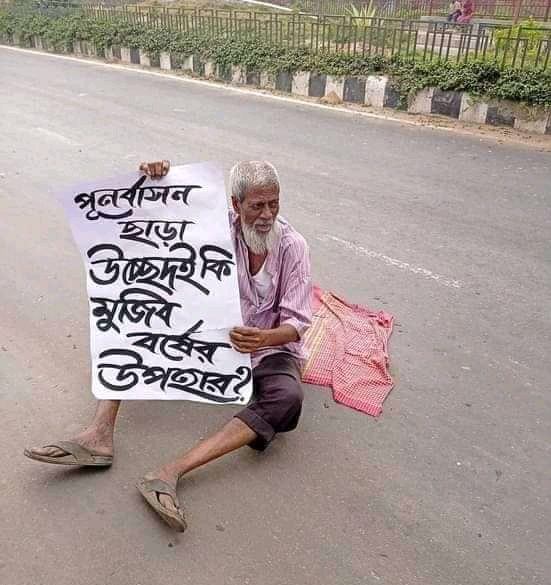 পূনর্বাসন
ছাড়া
উচ্ছেদই কি
মুজিব
বর্ষের
উপহার?